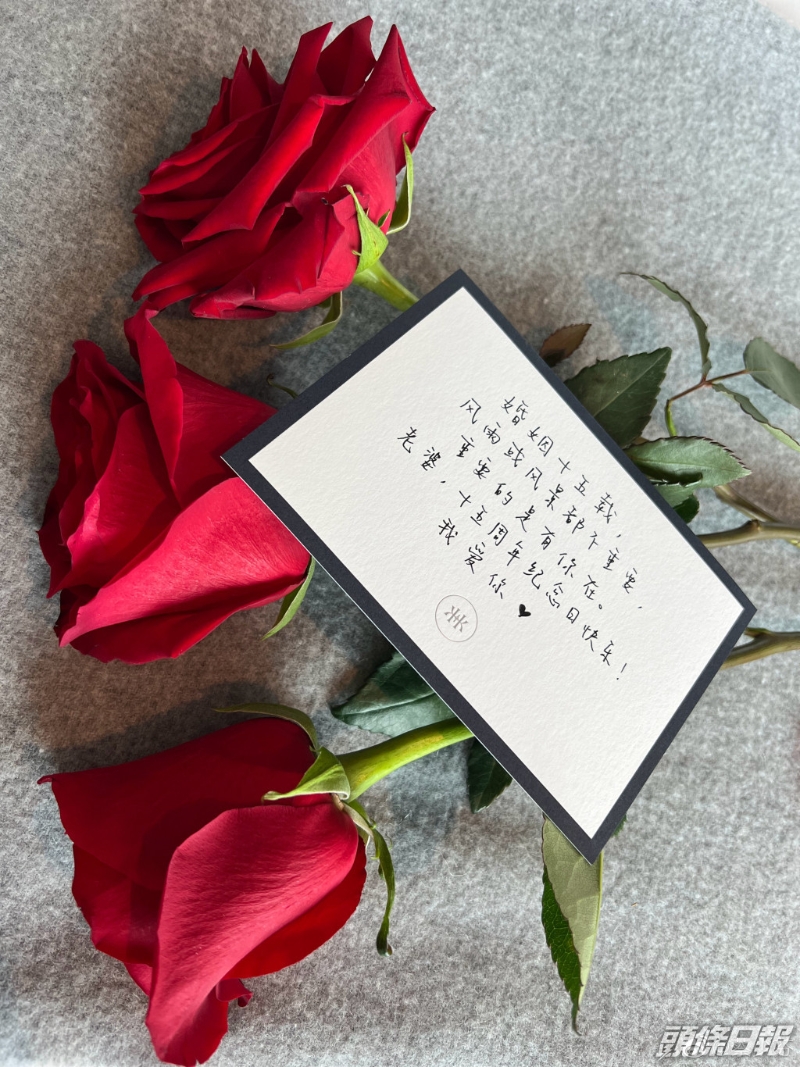 婚姻十五载，
风雨或风景都不重要，
重要的是有你在。
老婆，十五周年纪念日快乐！
我爱你♥
頭條日報